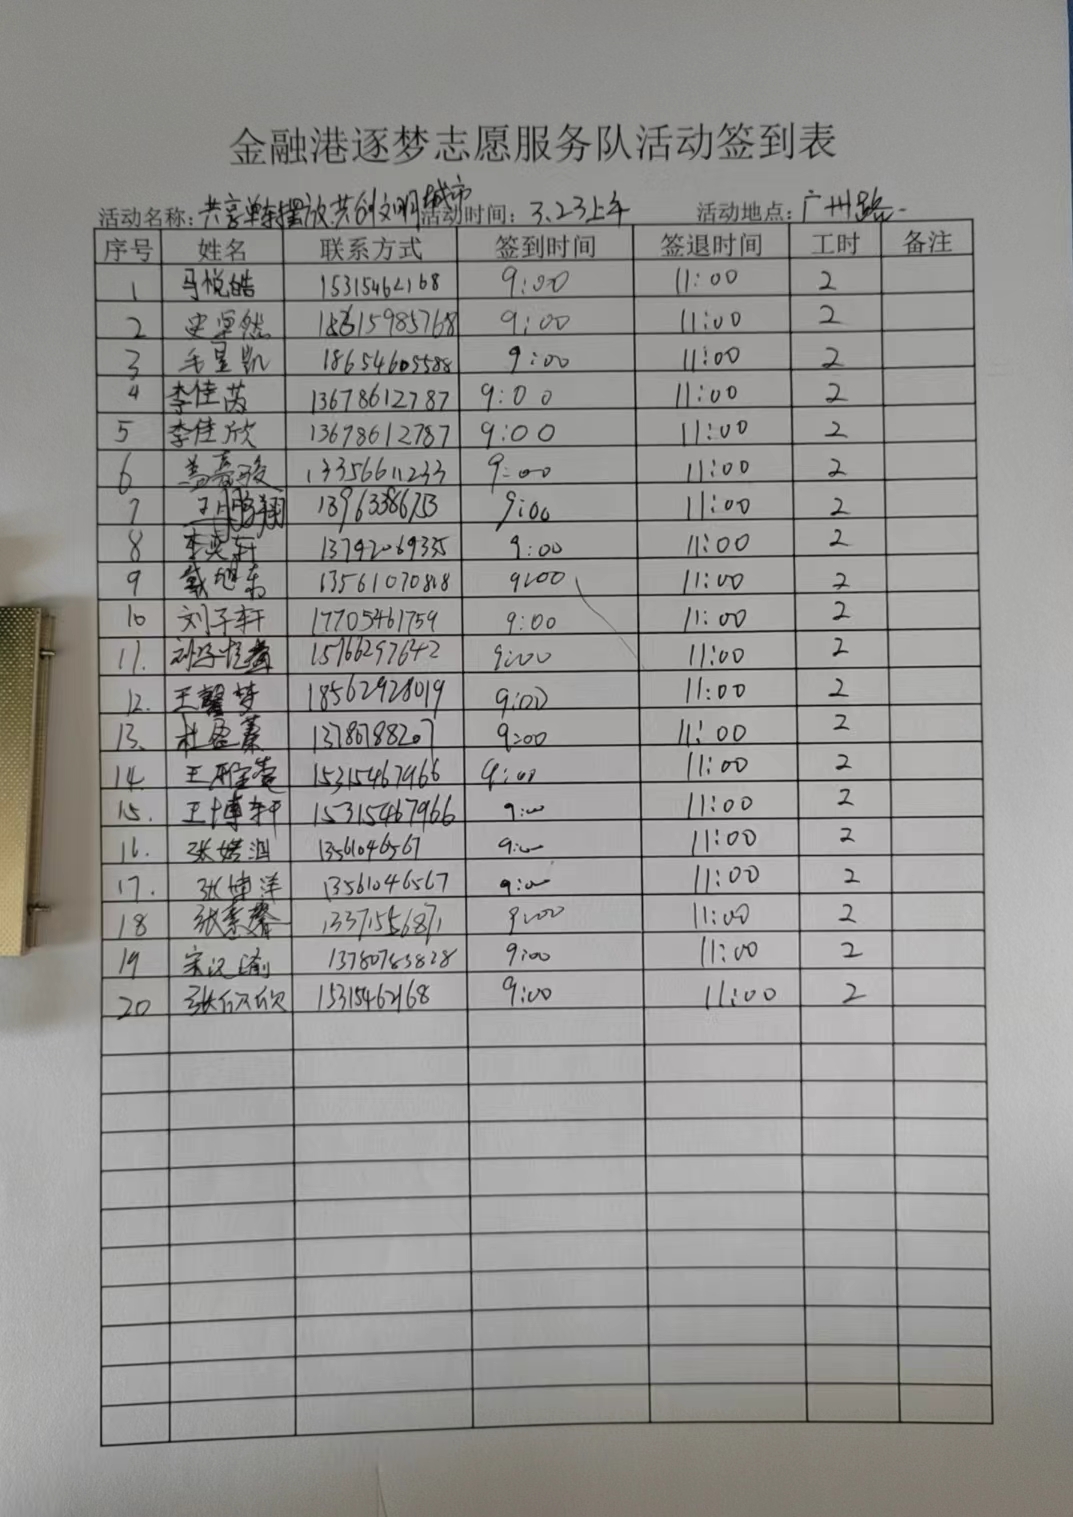 金融港逐梦志愿服务队活动签到表
活动名称：共享单车摆放共创文明城市 活动时间：3.23上午 活动地点：广州路
序号 姓名 联系方式 签到时间 签退时间 工时 备注
1 马悦皓 15315462168 9:00 11:00 2
2 史卓然 18615985768 9:00 11:00 2
3 毛昱凯 18654605588 9:00 11:00 2
4 李佳芮 13678612787 9:00 11:00 2
5 李佳欣 13678612787 9:00 11:00 2
6 13356611233 9:00 11:00 2
7 王鹏翔 9:00 11:00 2
8 李奕轩 13792069335 9:00 11:00 2
9 戴旭东 13561070818 9:00 11:00 2
10 刘子轩 17705461759 9:00 11:00 2
11. 15166297642 9:00 11:00 2
12. 王馨梦 18562928019 9:00 11:00 2
13. 13786788207 9:00 11:00 2
14. 15315467966 9:00 11:00 2
15. 王博轩 15315467966 9:00 11:00 2
16. 13561046567 9:00 11:00 2
17. 张博洋 13561046567 9:00 11:00 2
18 张素馨 13371556871 9:00 11:00 2
19 13780783828 9:00 11:00 2
20 张欣欣 15315462168 9:00 11:00 2